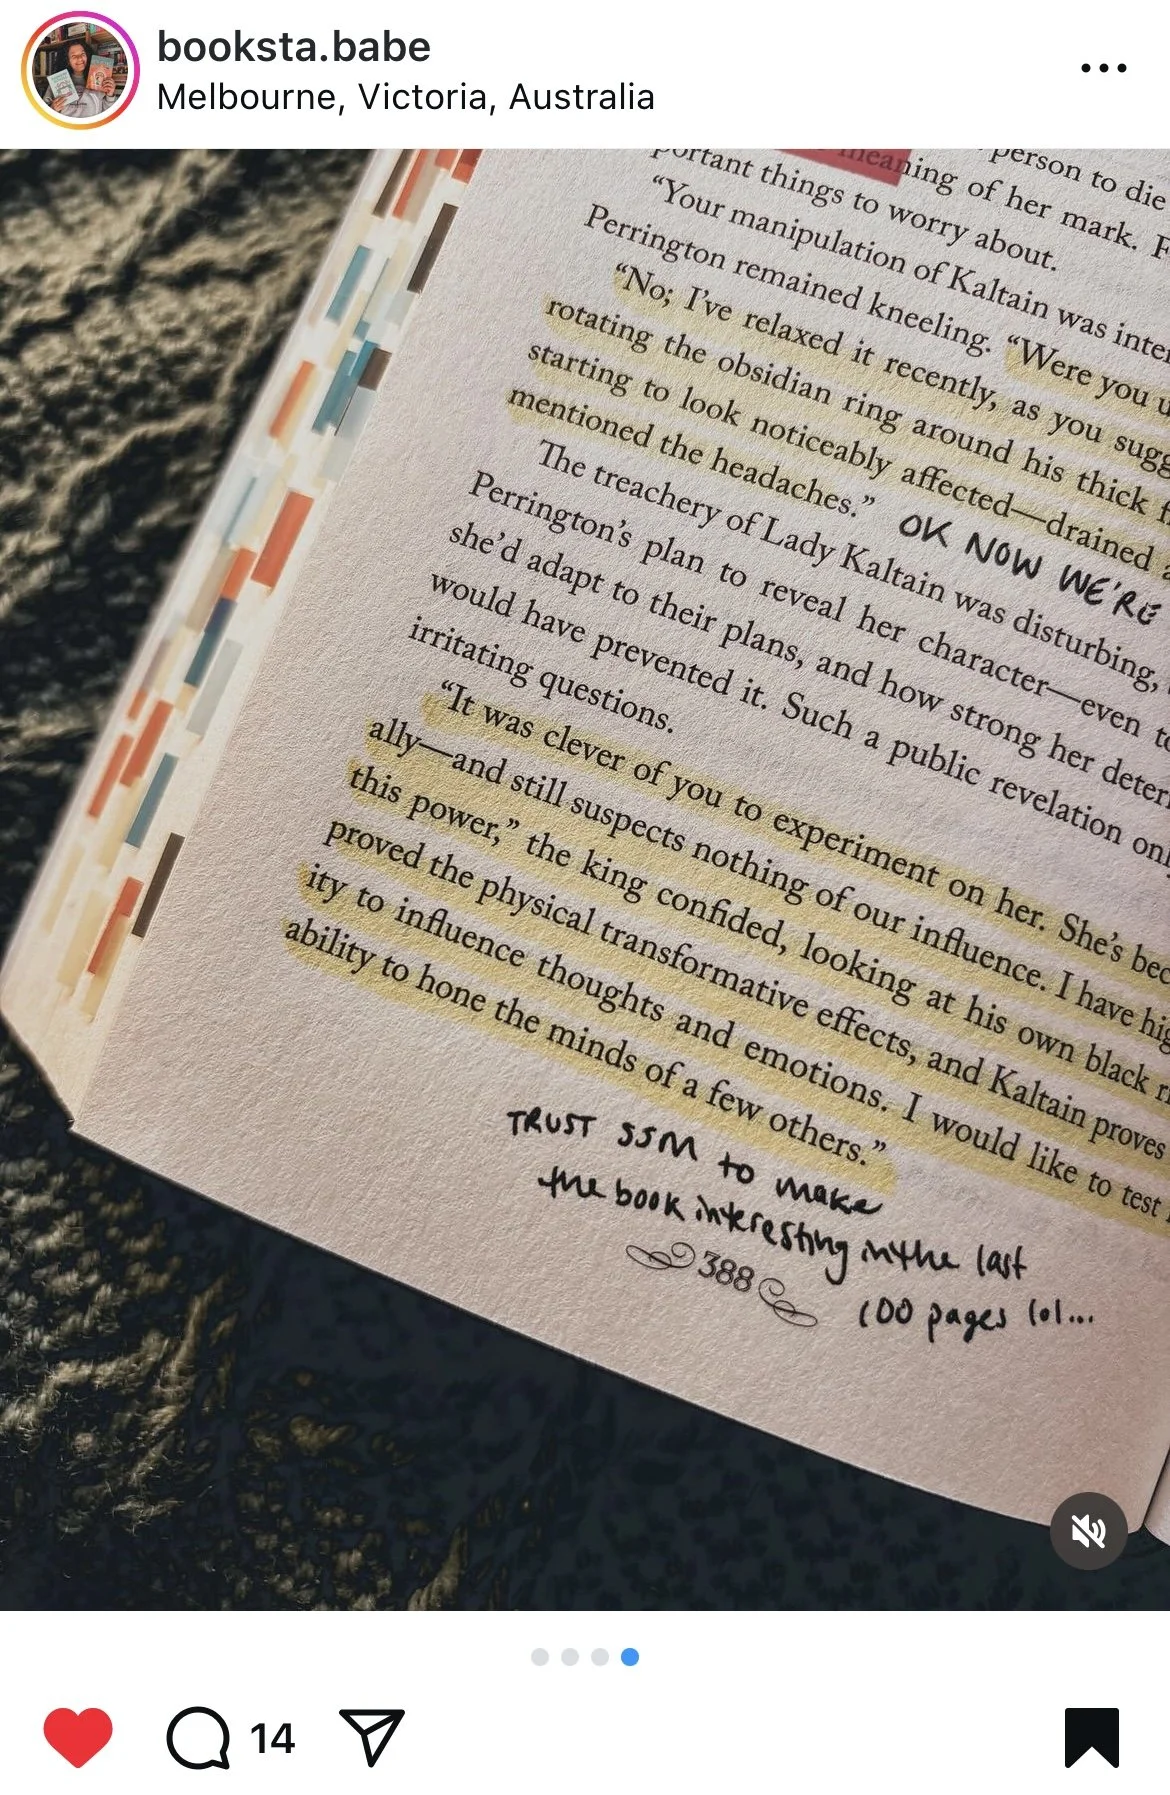 booksta.babe
Melbourne, Victoria, Australia
person to die
meaning of her mark. F
portant things to worry about.
“Your manipulation of Kaltain was inter
Perrington remained kneeling. “Were you u
“No; I’ve relaxed it recently, as you sugg
rotating the obsidian ring around his thick f
starting to look noticeably affected—drained a
mentioned the headaches.” OK NOW WE'RE
The treachery of Lady Kaltain was disturbing,
Perrington’s plan to reveal her character—even to
she’d adapt to their plans, and how strong her deter
would have prevented it. Such a public revelation onl
irritating questions.
“It was clever of you to experiment on her. She’s bec
ally—and still suspects nothing of our influence. I have hig
this power,” the king confided, looking at his own black r
proved the physical transformative effects, and Kaltain proves
ity to influence thoughts and emotions. I would like to test
ability to hone the minds of a few others.”
TRUST SJM to make
the book interesting in the last
100 pages lol...
388
14